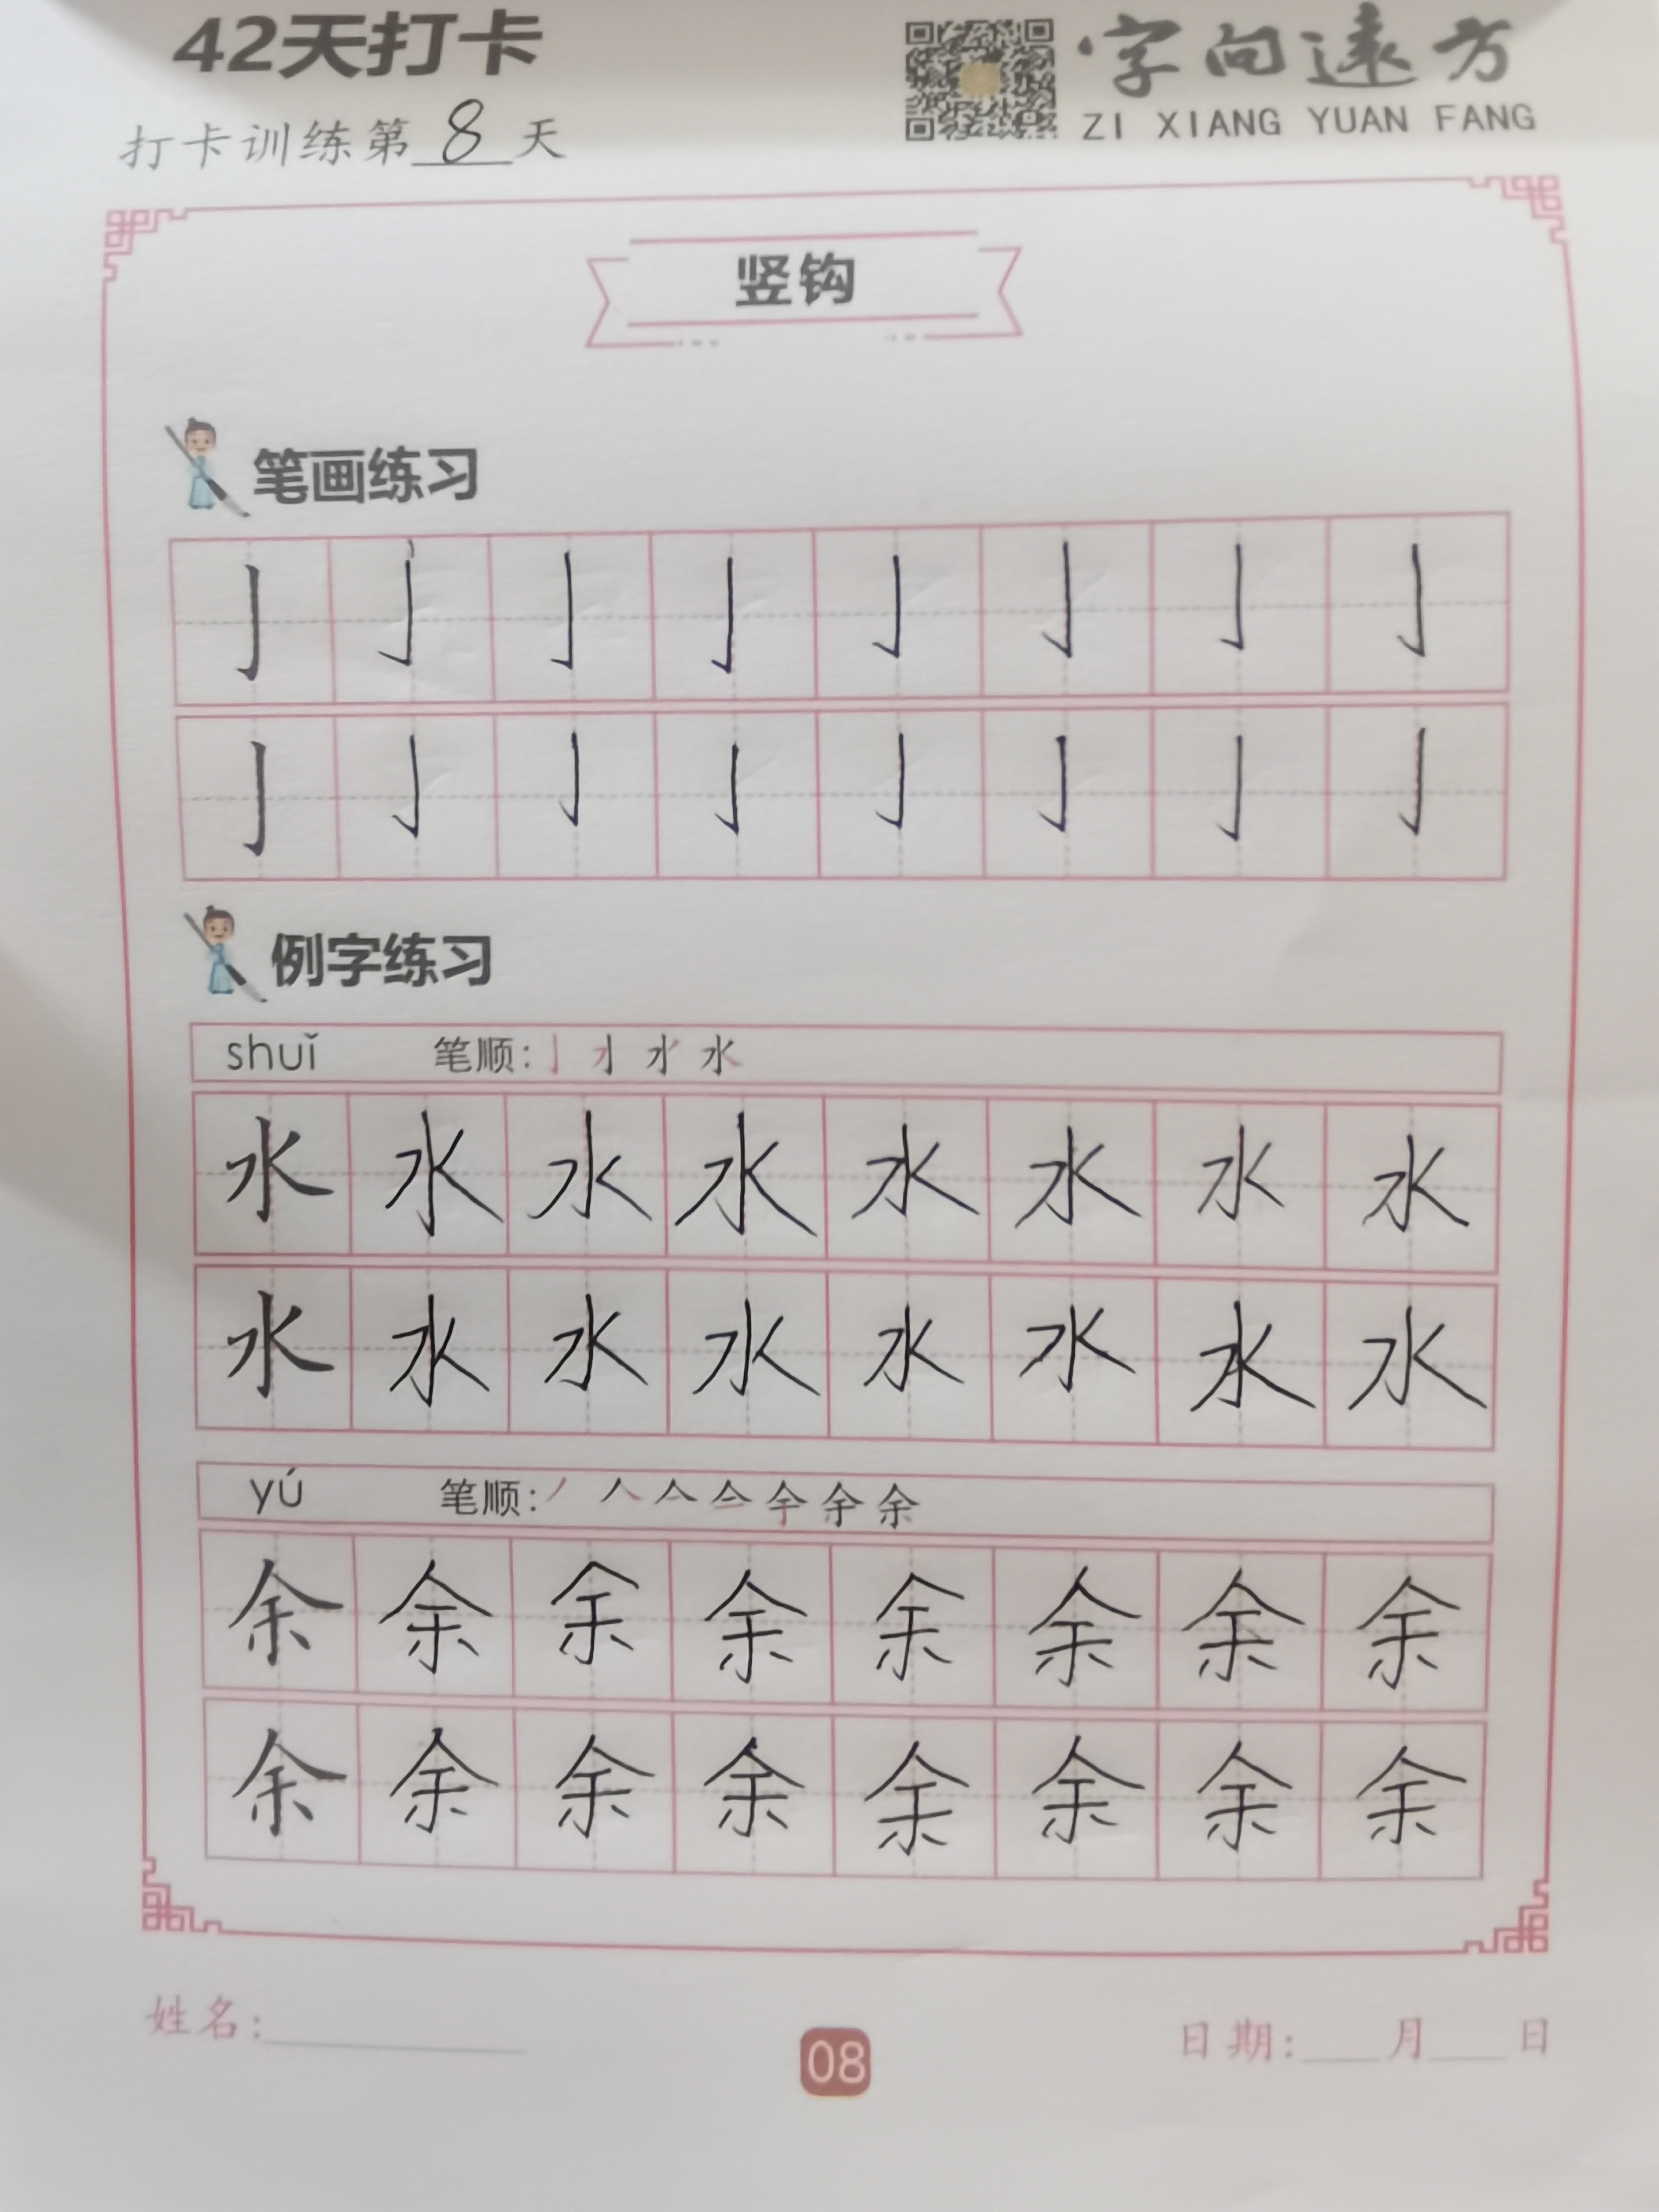 42天打卡
字向远方
ZI XIANG YUAN FANG
打卡训练第8天
竖钩
笔画练习
亅亅亅亅亅亅亅亅
亅亅亅亅亅亅亅亅
例字练习
shuǐ 笔顺:
水水水水水水水水
水水水水水水水水
yú 笔顺:
余余余余余余余余
余余余余余余余余
姓名:
08
日期: 月 日